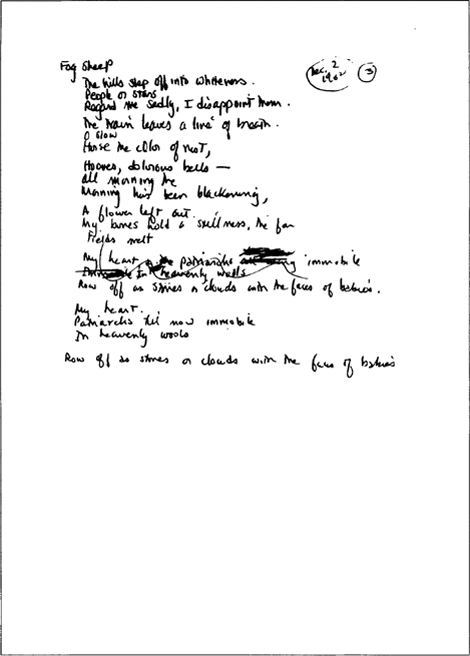 Fog Sheep
Dec. 2
1962
3
The hills step off into whiteness.
People or stars
Regard me sadly, I disappoint them.
The train leaves a line of breath.
O slow
Horse the color of rust,
Hooves, dolorous bells —
All morning the
Morning has been blackening,
A flower left out.
My bones hold a stillness, the far
Fields melt
My heart patriarchs immobile
In heavenly wools
Row off as stones or clouds with the faces of babies.
My heart.
Patriarchs til now immobile
In heavenly wools
Row off as stones or clouds with the faces of babies